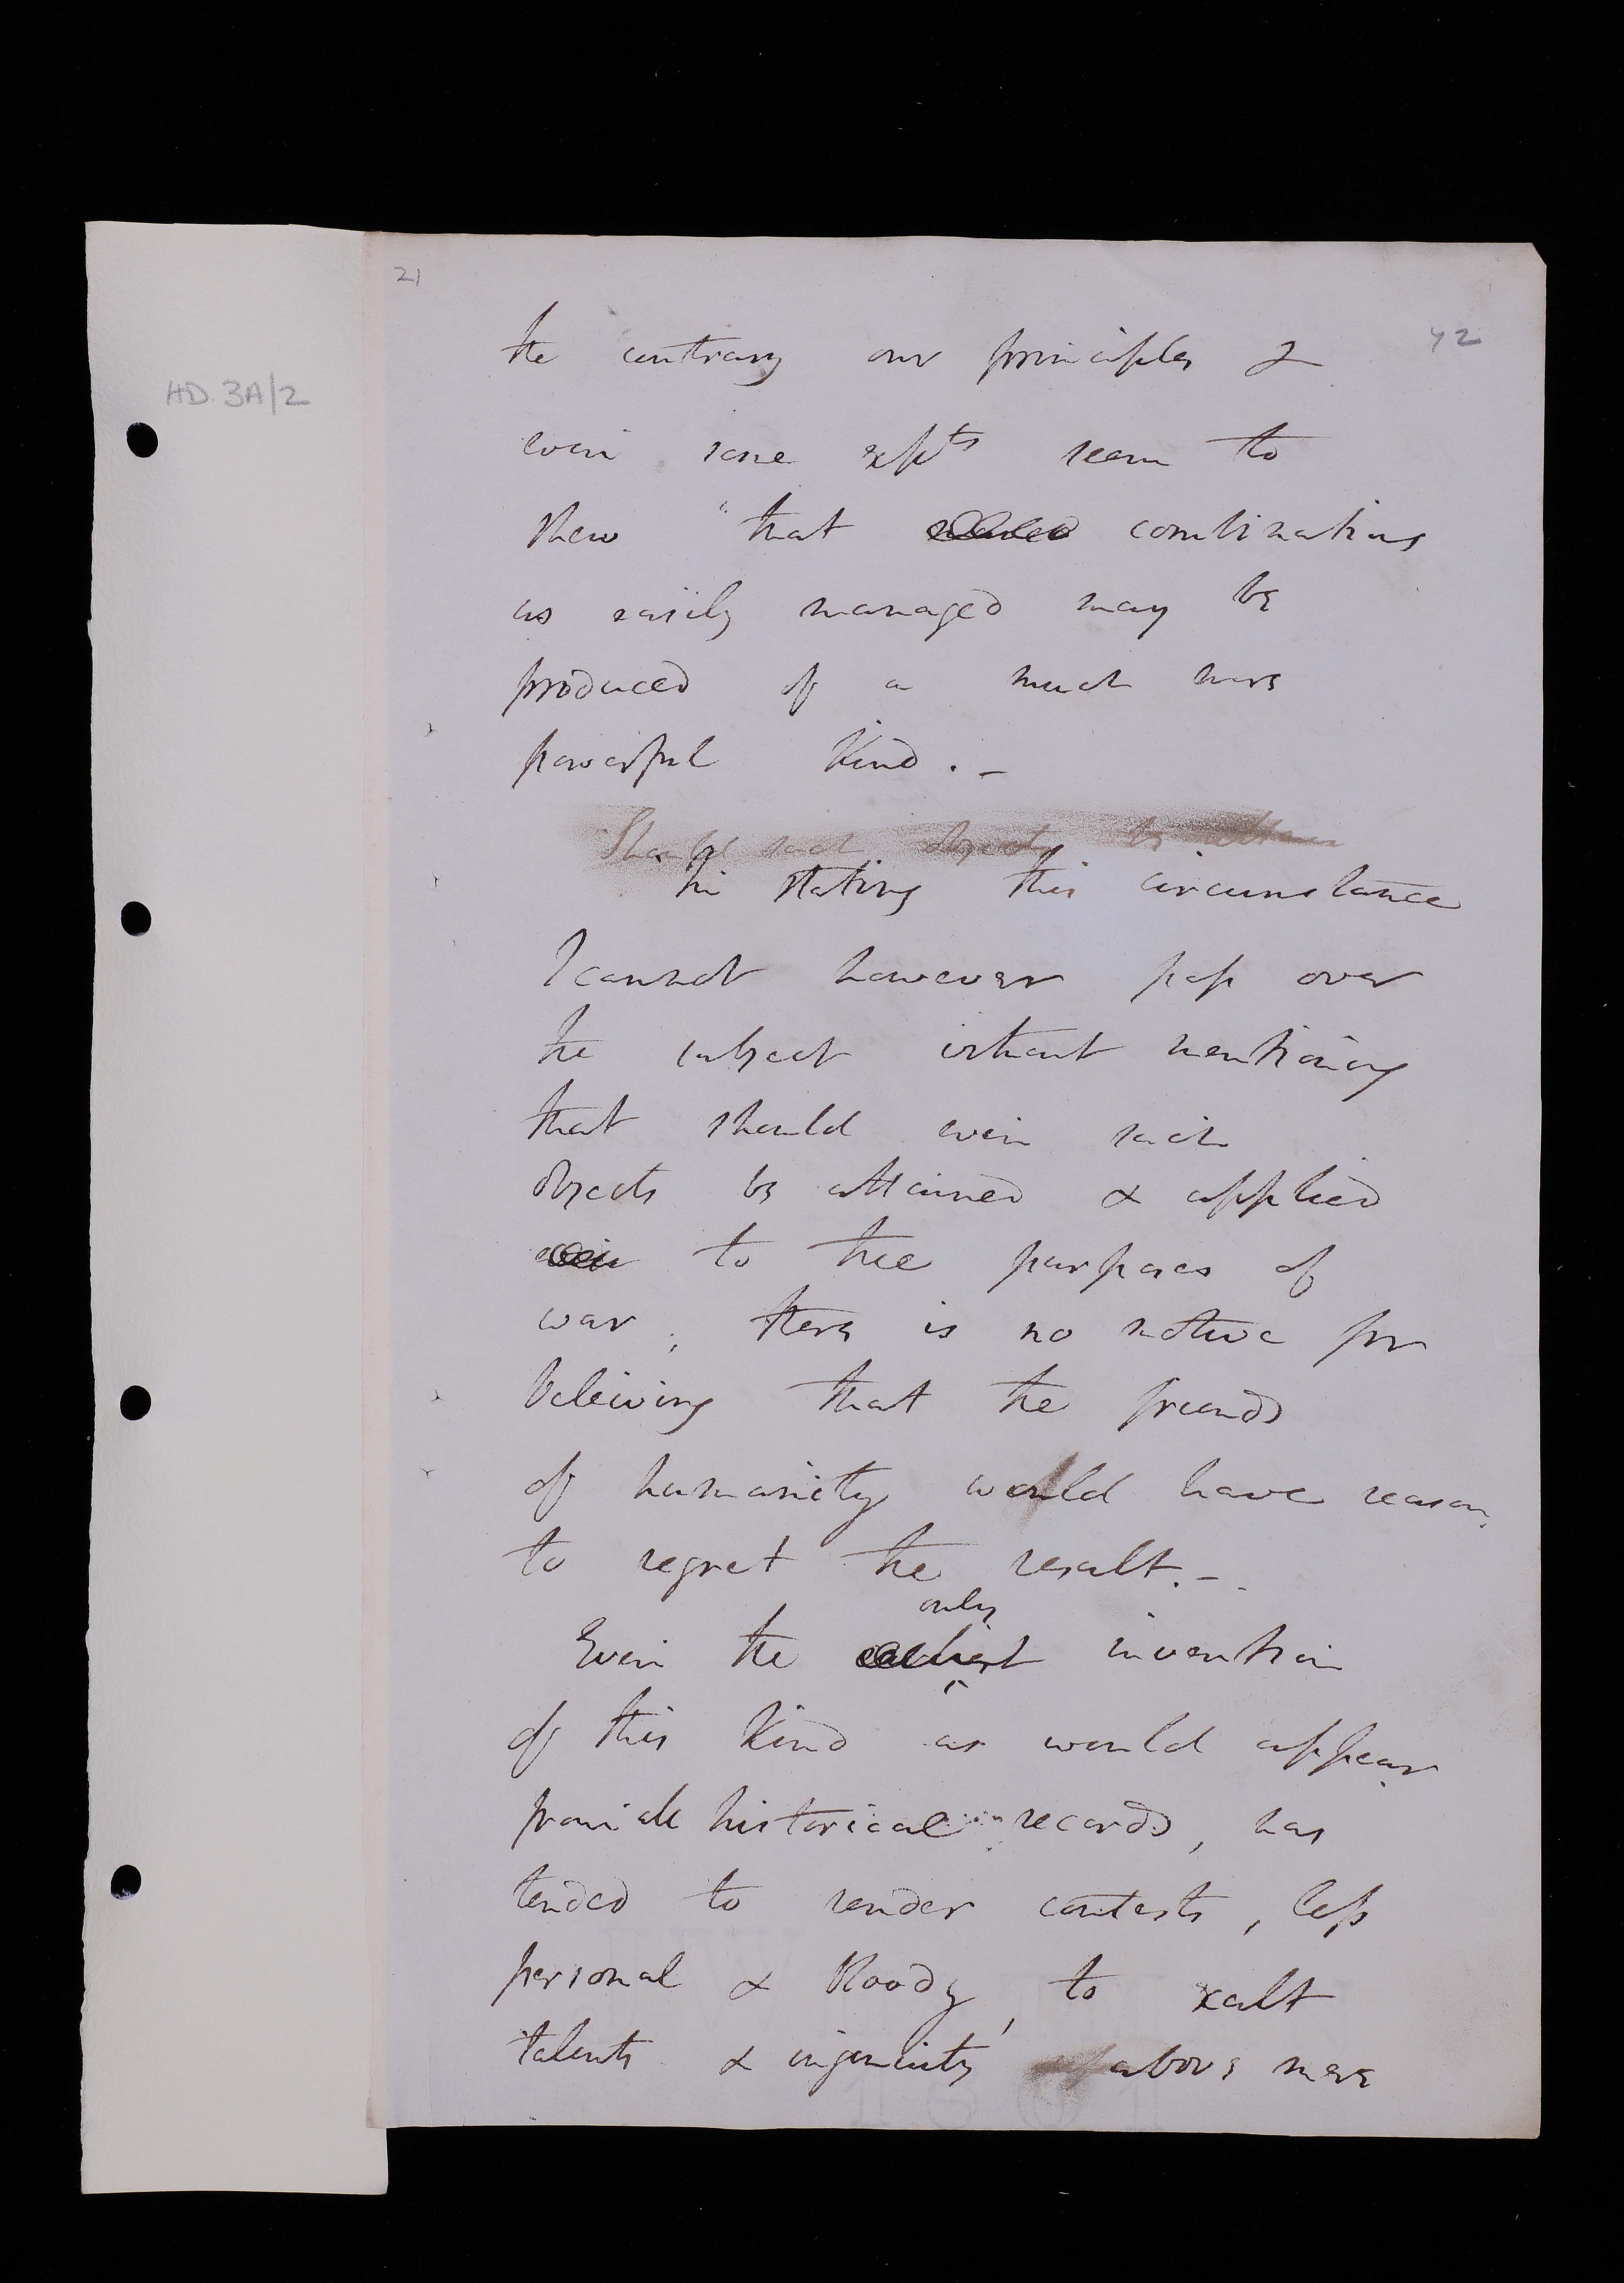 HD. 3A/2
21
42
the contrary our principles &
even some expts seem to
shew that combinations
as easily managed may be
produced of a much more
powerful kind. –
Should such objects be attain
In stating this circumstance
I cannot however pass over
the subject without mentioning
that should even such
objects be attained & applied
even to the purposes of
war, there is no motive for
beleiving that the friends
of humanity would have reason
to regret the result. –
only
Even the earliest invention
of this kind as would appear
from all historical records, has
tended to render contests, less
personal & bloody, to exalt
talents & ingenuity above mere